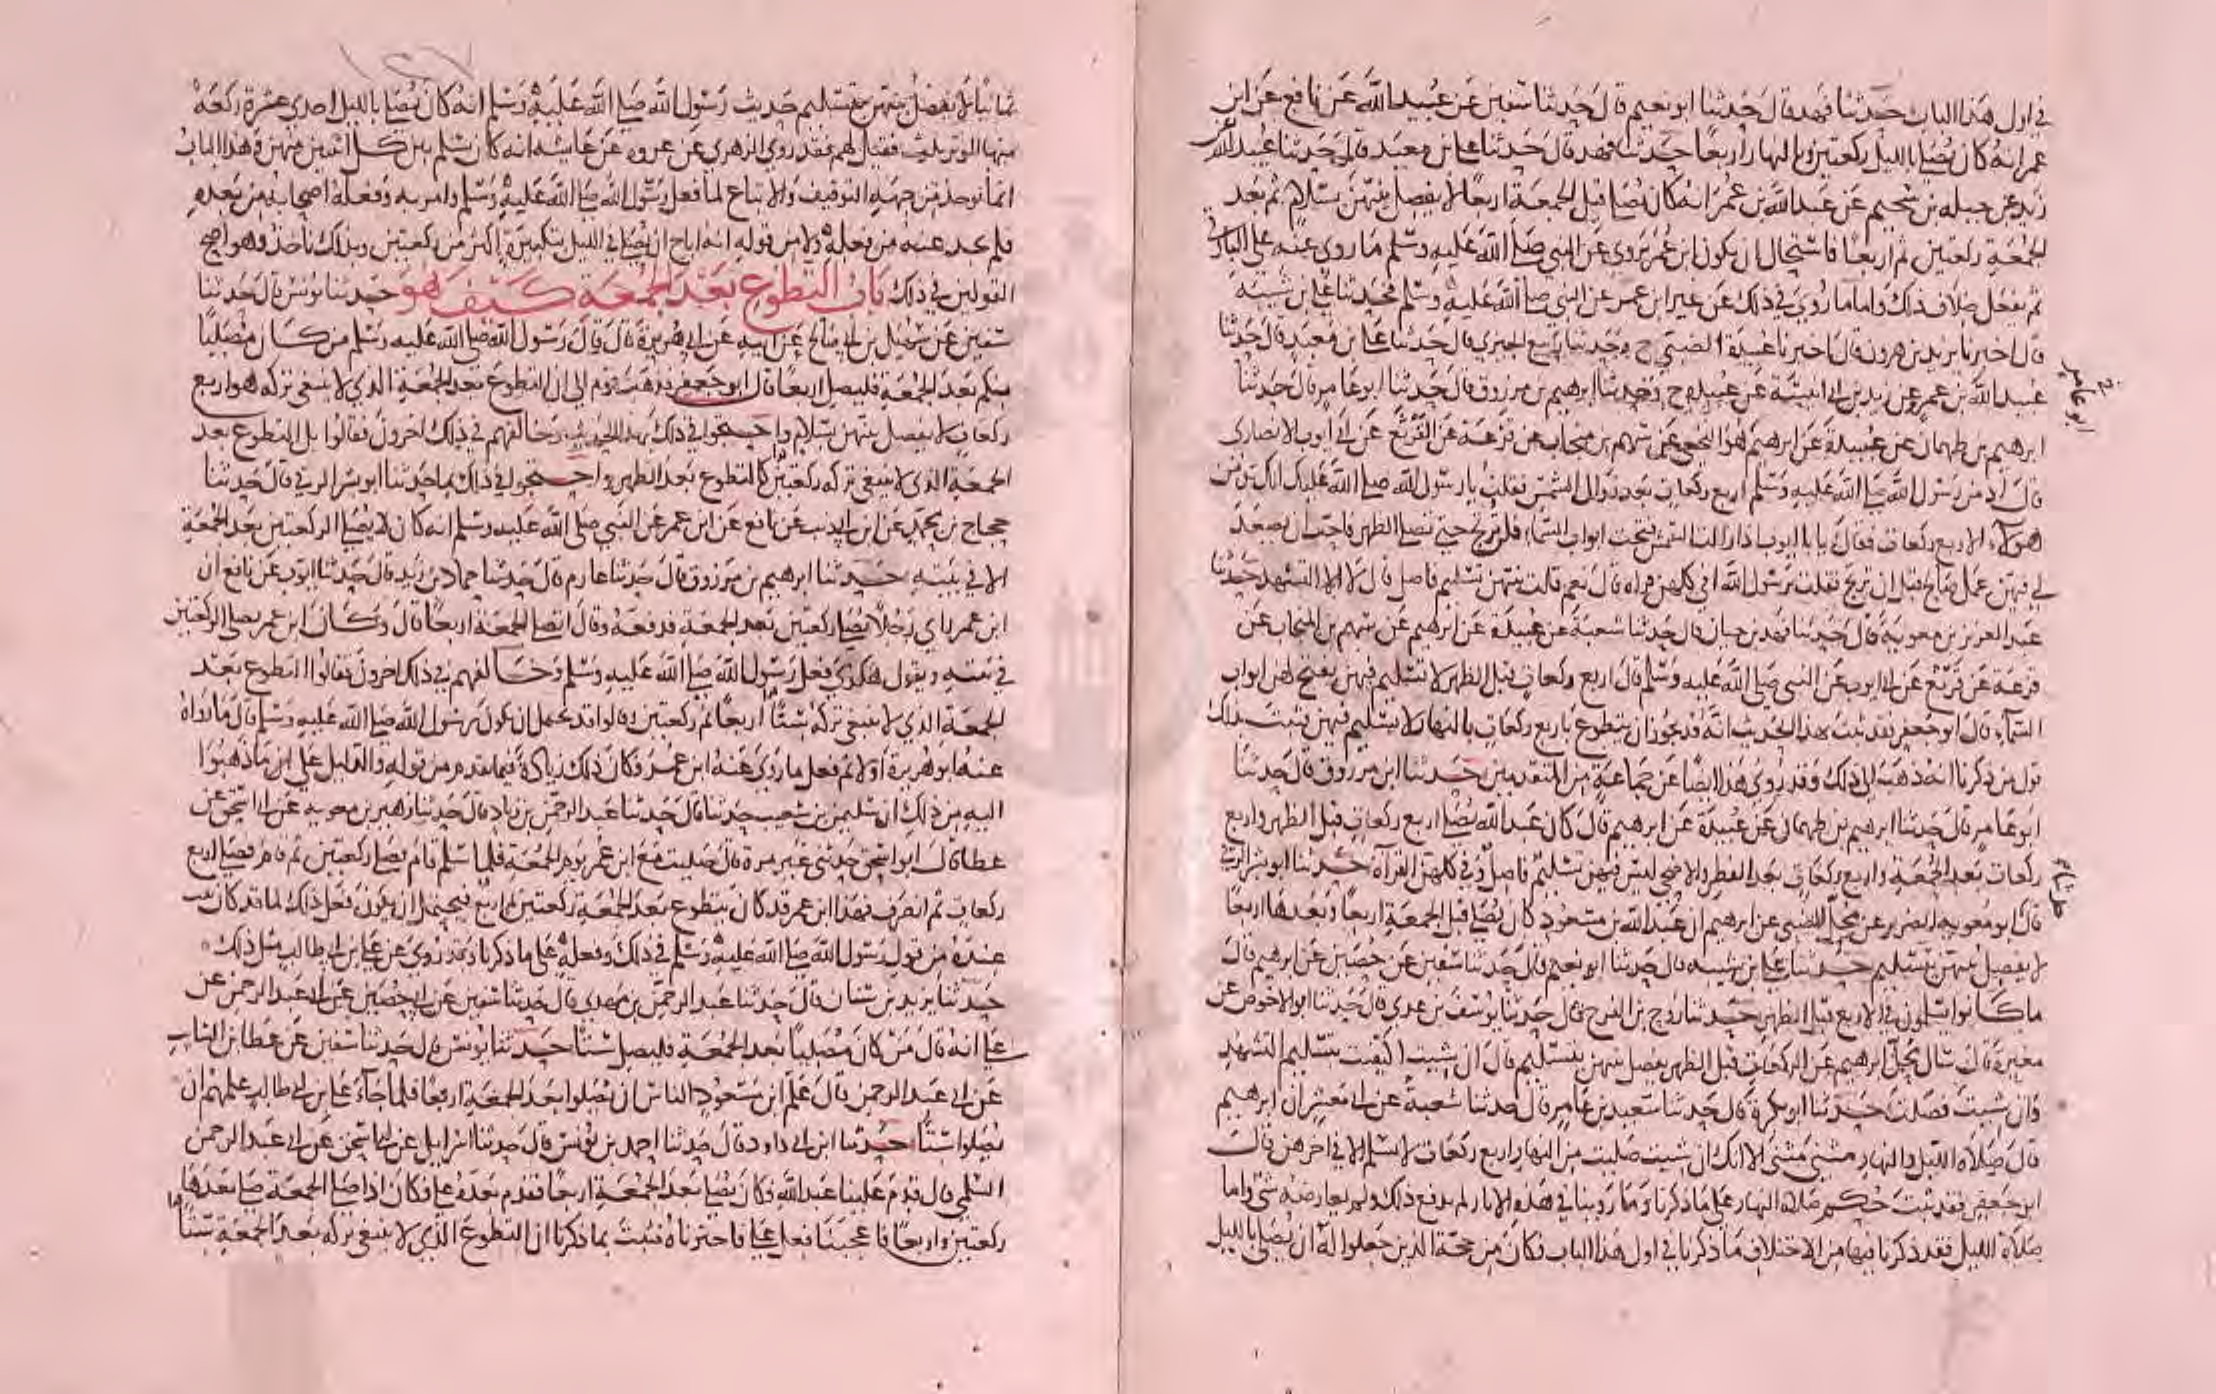 في اول هذا الباب حدثنا فهد قال حدثنا ابو نعيم قال حدثنا سفين عن عبيد الله عن نافع عن ابن
عمر انه كان يصلي بالليل ركعتين وبالنهار اربعا حدثنا فهد قال حدثنا علي بن معبد قال حدثنا عبيد الله عن
زيد عن جبله بن سحيم عن عبد الله بن عمر انه كان يصلي قبل الجمعة اربعا لا يفصل بينهن بسلام ثم بعد
الجمعة ركعتين ثم اربعا فاستحال ان يكون ابن عمر يروي عن النبي صلى الله عليه وسلم ما روى عنه علي البارقي
ثم يفعل خلاف ذلك واما ما روي في ذلك عن غير ابن عمر عن النبي صلى الله عليه وسلم فحدثنا علي بن شيبة
قال اخبرنا يزيد بن هرون قال اخبرنا عبيدة الضبي ح وحدثنا ربيع الجيزي قال حدثنا علي بن معبد قال حدثنا
عبيد الله بن عمرو عن زيد بن ابي انيسة عن عبيدة ح وحدثنا ابرهيم بن مرزوق قال حدثنا ابو عامر قال حدثنا
ابو عامر
ابرهيم بن طهمان عن عبيدة عن ابرهيم هو النخعي عن سهم بن منجاب عن قزعة عن القرثع عن ابي ايوب الانصاري
قال ادمن رسول الله صلى الله عليه وسلم اربع ركعات بعد زوال الشمس فقلت يا رسول الله صلى الله عليك انك تدمن
هؤلاء الاربع ركعات فقال يا ابا ايوب اذا زالت الشمس فتحت ابواب السماء فلن ترتج حتى نصلي الظهر فاحب ان يصعد
لي فيهن عمل صالح قبل ان ترتج فقلت يرسول الله افي كلهن قراه قال نعم قلت بينهن تسليم فاصل قال لا الا التشهد حدثنا
عبد العزيز بن معوية قال حدثنا فهد بن حيان قال حدثنا شعبة عن عبيدة عن ابرهيم عن سهم بن المنجاب عن
قزعة عن قرثع عن ابي ايوب عن النبي صلى الله عليه وسلم قال اربع ركعات قبل الظهر لا تسليم فيهن يفتح لهن ابواب
السماء قال ابو جعفر فقد ثبت بهذا الحديث انه قد يجوز ان يتطوع باربع ركعات بالنهار لا يسلم فيهن فثبت بذلك
قول من ذكرنا انه ذهب الى ذلك وقد روي هذا ايضا عن جماعة من المتقدمين حدثنا ابن مرزوق قال حدثنا
ابو عامر قال حدثنا ابرهيم بن طهمان عن عبيدة عن ابرهيم قال كان عبد الله يصلي اربع ركعات قبل الظهر واربع
ركعات بعد الجمعة واربع ركعات بعد الفطر والاضحى ليس فيهن تسليم فاصل وفي كلهن القرآه حدثنا ابو بشر الرقي
قال ابو معويه الضرير عن محل الضبي عن ابرهيم ان عبد الله بن مسعود كان يصلي قبل الجمعة اربعا وبعدها اربعا
لا يفصل بينهن بتسليم حدثنا علي بن شيبه قال حدثنا ابو نعيم قال حدثنا سفين عن حصين عن ابرهيم قال
ما كانوا يسلمون في الاربع قبل الظهر حدثنا روح بن الفرج قال حدثنا يوسف بن عدي قال حدثنا ابو الاحوص عن
مغيرة قال سال محل ابرهيم عن الركعات قبل الظهر يفصل بينهن بتسليم قال ان شيت اكتفيت بتسليم التشهد
وان شيت فصلت حدثنا ابو بكرة قال حدثنا سعيد بن عامر قال حدثنا شعبة عن ابي معشر ان ابرهيم
قال صلاة الليل والنهار مثنى مثنى الا انك ان شيت صليت من النهار اربع ركعات لا تسلم الا في اخرهن قال
ابو جعفر فقد ثبت حكم صلاة النهار على ما ذكرنا وما روينا في هذه الاثار لم يدفع ذلك ولم يعارضه شي واما
صلاة الليل فقد ذكرنا فيها من الاختلاف ما ذكرنا في اول هذا الباب فكان من حجة الذين جعلوا له ان يصلي بالليل
ثمانيا لا يفصل بينهن بتسليم حديث رسول الله صلى الله عليه وسلم انه كان يصلي بالليل احدى عشرة ركعة
منها الوتر بثلث فقيل لهم فقد روى الزهري عن عروه عن عايشه انه كان يسلم بين كل اثنين منهن وهذا الباب
انما يوخذ من جهة التوقيف والاتباع لما فعل رسول الله صلى الله عليه وسلم وامر به وفعله اصحابه من بعده
فلم نجد عنه من فعله ولا من قوله انه اباح ان يصلى في الليل بتكبيرة اكثر من ركعتين وبذلك ناخذ وهو اصح
القولين في ذلك باب التطوع بعد الجمعة كيف هو حدثنا يونس قال حدثنا
سفين عن سهيل بن ابي صالح عن ابيه عن ابي هريرة قال قال رسول الله صلى الله عليه وسلم من كان مصليا
منكم بعد الجمعة فليصل اربعا قال ابو جعفر فذهب قوم الى ان التطوع بعد الجمعة الذي لا ينبغي تركه هو اربع
ركعات لا يفصل بينهن بسلام واحتجوا في ذلك بهذا الحديث وخالفهم في ذلك اخرون فقالوا بل التطوع بعد
الجمعة الذي لا ينبغي تركه ركعتين كالتطوع بعد الظهر واحتجوا في ذلك بما حدثنا ابو بشر الرقي قال حدثنا
حجاج بن محمد عن ابن ابي ذيب عن نافع عن ابن عمر عن النبي صلى الله عليه وسلم انه كان لا يصلي الركعتين بعد الجمعة
الا في بيته حدثنا ابرهيم بن مرزوق قال حدثنا عارم قال حدثنا حماد بن زيد قال حدثنا ايوب عن نافع ان
ابن عمر راي رجلا يصلي ركعتين بعد الجمعة فدفعه وقال اتصلي الجمعة اربعا قال وكان ابن عمر يصلي الركعتين
في بيته ويقول هكذى فعل رسول الله صلى الله عليه وسلم وخالفهم في ذلك اخرون فقالوا التطوع بعد
الجمعة الذي لا ينبغي تركه ستا اربعا ثم ركعتين وقالوا قد يحتمل ان يكون رسول الله صلى الله عليه وسلم قال ما رواه
عنه ابو هريرة اولا ثم فعل ما روى عنه ابن عمر فكان ذلك زيادة فيما تقدم من قوله والدليل على ان ما ذهبوا
اليه من ذلك ان سليمن بن شعيب حدثنا قال حدثنا عبد الرحمن بن زياد قال حدثنا زهير بن معويه عن ابي اسحق عن
عطا قال ابو اسحق حدثني غير مرة قال صليت مع ابن عمر يوم الجمعة فلما سلم قام يصلي ركعتين ثم قام فصلى اربع
ركعات ثم انصرف فهذا ابن عمر قد كان يتطوع بعد الجمعة ركعتين ثم اربع فيحتمل ان يكون فعل ذلك لما قد كان ثبت
عنده من قول رسول الله صلى الله عليه وسلم في ذلك وفعله على ما ذكرنا وقد روي عن علي بن ابي طالب مثل ذلك
حدثنا يزيد بن سنان قال حدثنا عبد الرحمن بن مهدي قال حدثنا سفين عن ابي حصين عن ابي عبد الرحمن عن
علي انه قال من كان مصليا بعد الجمعة فليصل ستا حدثنا يونس قال حدثنا سفين عن عطا بن السايب
عن ابي عبد الرحمن قال علم ابن مسعود الناس ان يصلوا بعد الجمعة اربعا فلما جآء علي بن ابي طالب علمهم ان
يصلوا ستا حدثنا ابن ابي داود قال حدثنا احمد بن يونس قال حدثنا اسرايل عن ابي اسحق عن ابي عبد الرحمن
السلمي قال قدم علينا عبد الله فكان يصلي بعد الجمعة اربعا فقدم بعده علي فكان اذا صلى الجمعة صلى بعدها
ركعتين واربعا فاعجبنا فعل علي فاخترناه فثبت بما ذكرنا ان التطوع الذي لا ينبغي تركه بعد الجمعة ستا